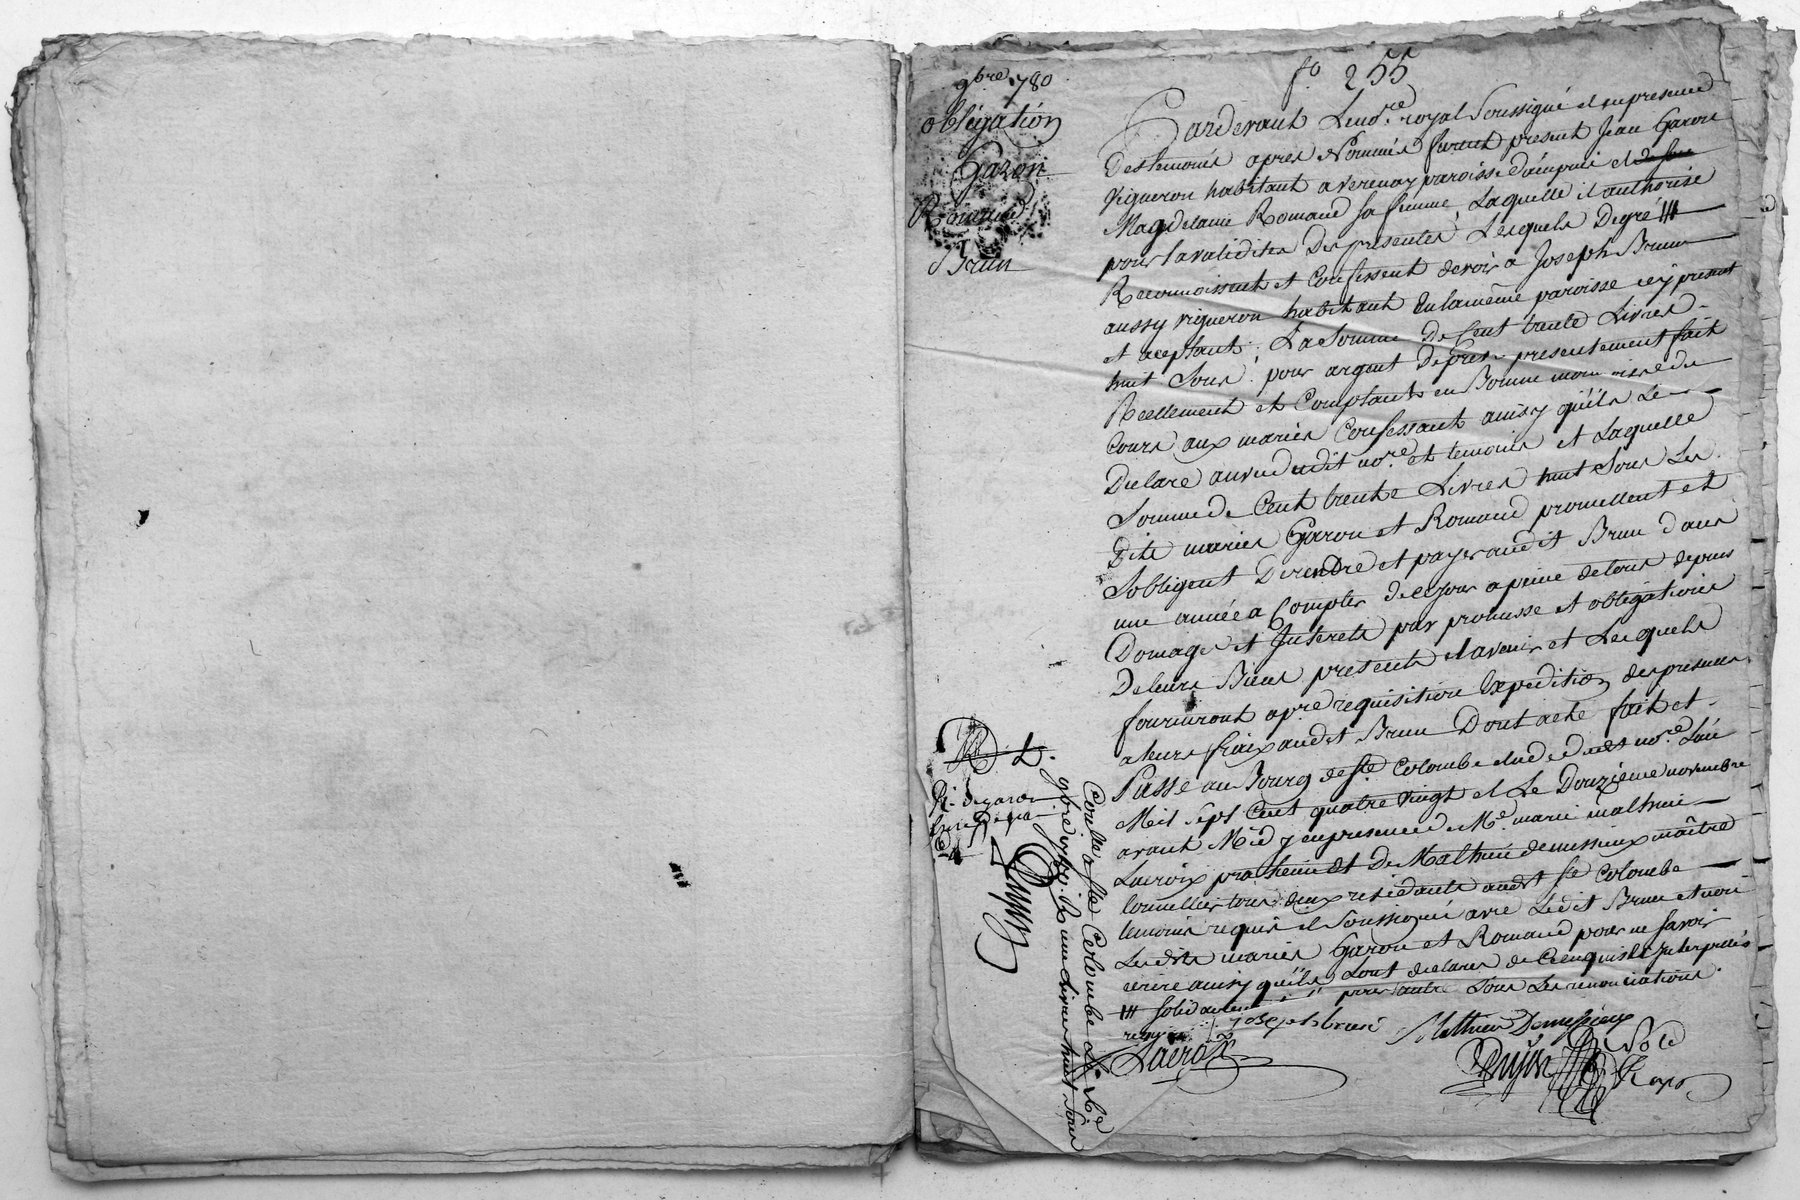 fo 255
9bre 780
obligation
Garon
Romand
Brun
Pardevant Le no.re royal Soussigné et en presence
Des temoins apres Nommés furent present Jean Garon
Vigneron habitant a Verenay paroisse d'ampuis et
Magdelaine Romand sa femme Laquelle il authorise
pour la validitée Des presentes Lesquels De gré
Reconnoissent et Confessent devoir a Joseph Brun
aussy vigneron habitant En la même paroisse icy present
et aceptant, La Somme De Cent trente Livres
huit Sous pour argent De pret presentement fait
Reellement et Comptant en Bonne monoie du
Cours aux mariés Confessant ainsy qu'ils Le
Declare au vu dudit no.re et temoins et Laquelle
Somme de Cent trente Livres huit Sous Les
Dits mariés Garon et Romand promettent et
S'obligent De rendre et payer audit Brun dans
une année a Compter de ce jour a peine de tous depens
Domages et Interets par promesse et obligations
De leurs Biens presents et avenir et Lesquels
fourniront apre requisition Expedition des presentes
a leurs fraix audit Brun Dont acte fait et
Passé au Bourg de Ste Colombe etude dudit no.re L'an
Mil Sept Cent quatre vingt et Le Douzieme novembre
avant Midy en presence de Me. marie mathieu
Lacroix praticien et De Mathieu demissieux maître
tonnellier tous deux residants audit Ste Colombe
temoins requis et Soussignés avec Ledit Brun et non
Les dits mariés Garon et Romand pour ne Savoir
ecrire ainsy qu'ils L'ont declarés de ce enquis et Interpellés
solidairement pour l'autre Sous Les renonciations
joseph brun Mathieu Demissieux
Lacroix
Dujon No.re Royal
Conlle a Ste Colombe Le
9bre 1780. R. une livre huit Sous
Dujon